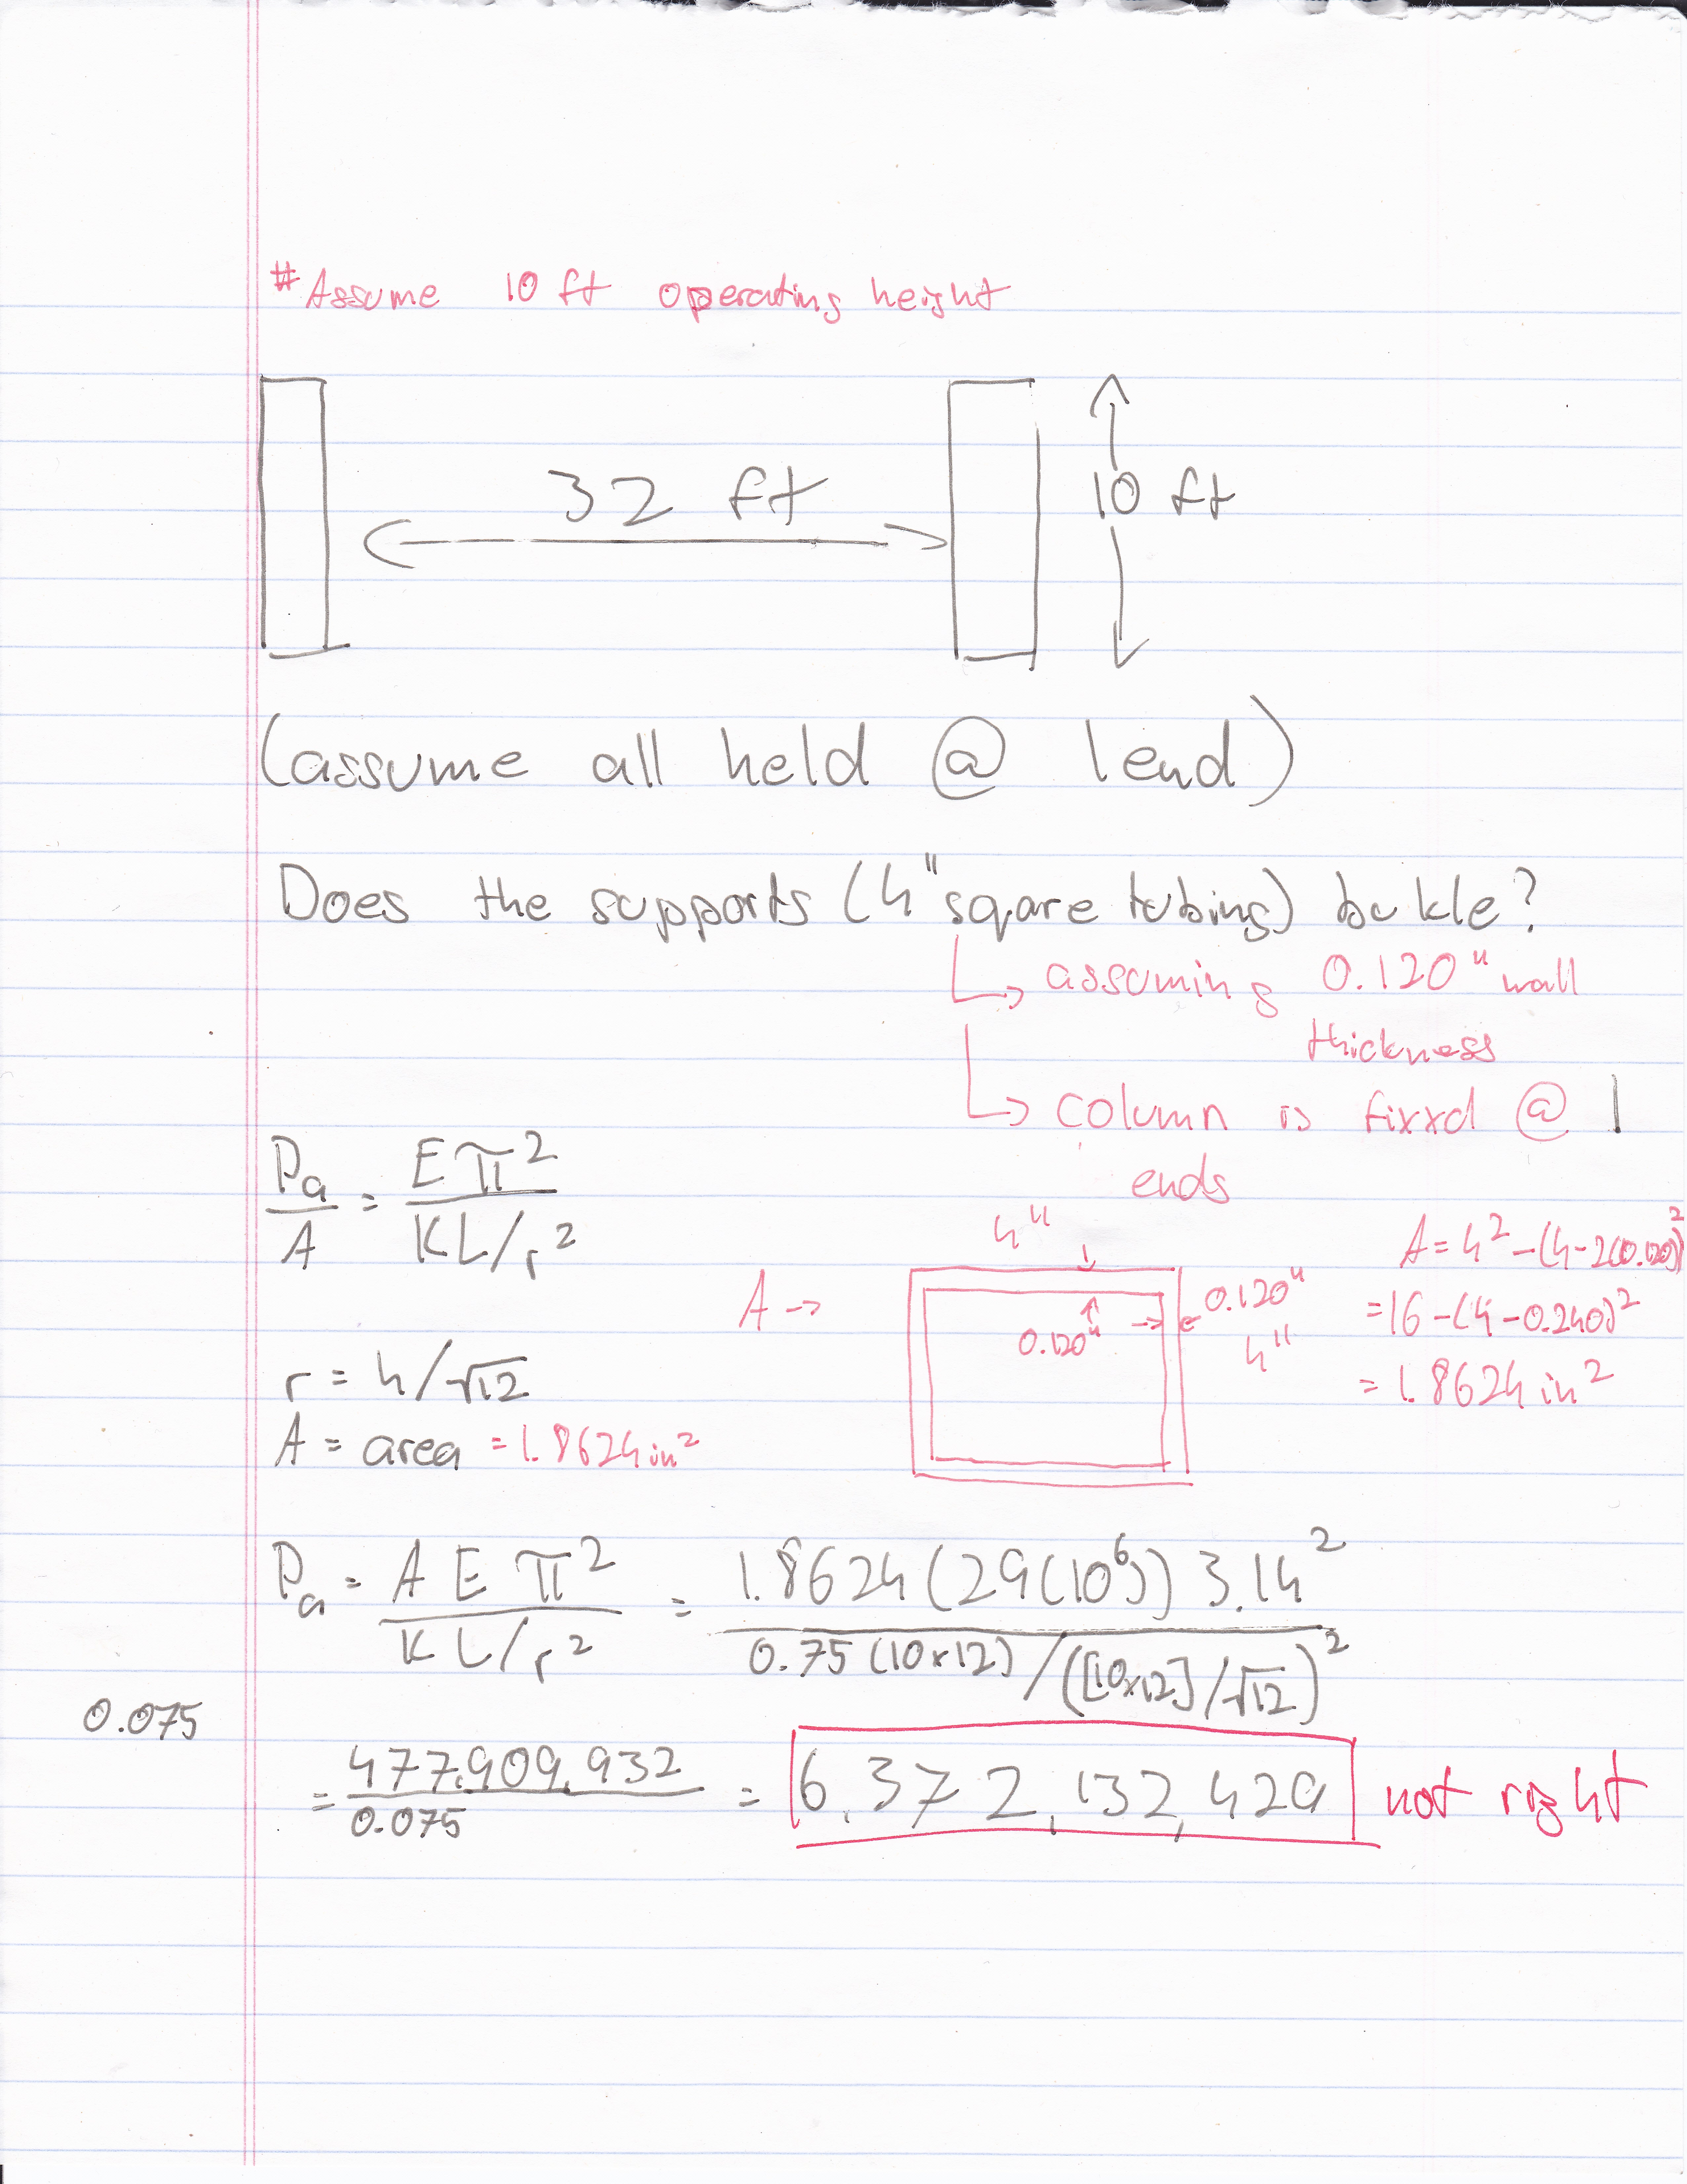 # Assume 10 ft operating height
32 ft
10 ft
(assume all held @ 1 end)
Does the supports (4" square tubing) bukle?
↳ assuming 0.120" wall
thickness
↳ column is fixxd @ 1
ends
Pa/A = Eπ²/KL/r²
4"
A = 4² - (4-2(0.120))²
A →
0.120"
= 16 - (4 - 0.240)²
0.120"
4"
r = h/√12
= 1.8624 in²
A = area = 1.8624 in²
Pa = A E π²/KL/r² = 1.8624 (29(10⁶)) 3.14²/0.75 (10x12)/([10x12]/√12)²
0.075
= 477,909,932/0.075 = 6,372,132,429 not right